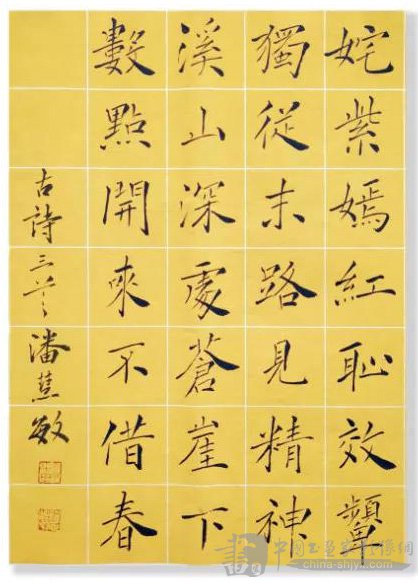 姹紫嫣紅恥效顰
獨從末路見精神
溪山深處蒼崖下
數點開來不借春
古詩三首潘敏
中国书画家影像网
china-shjyx.com